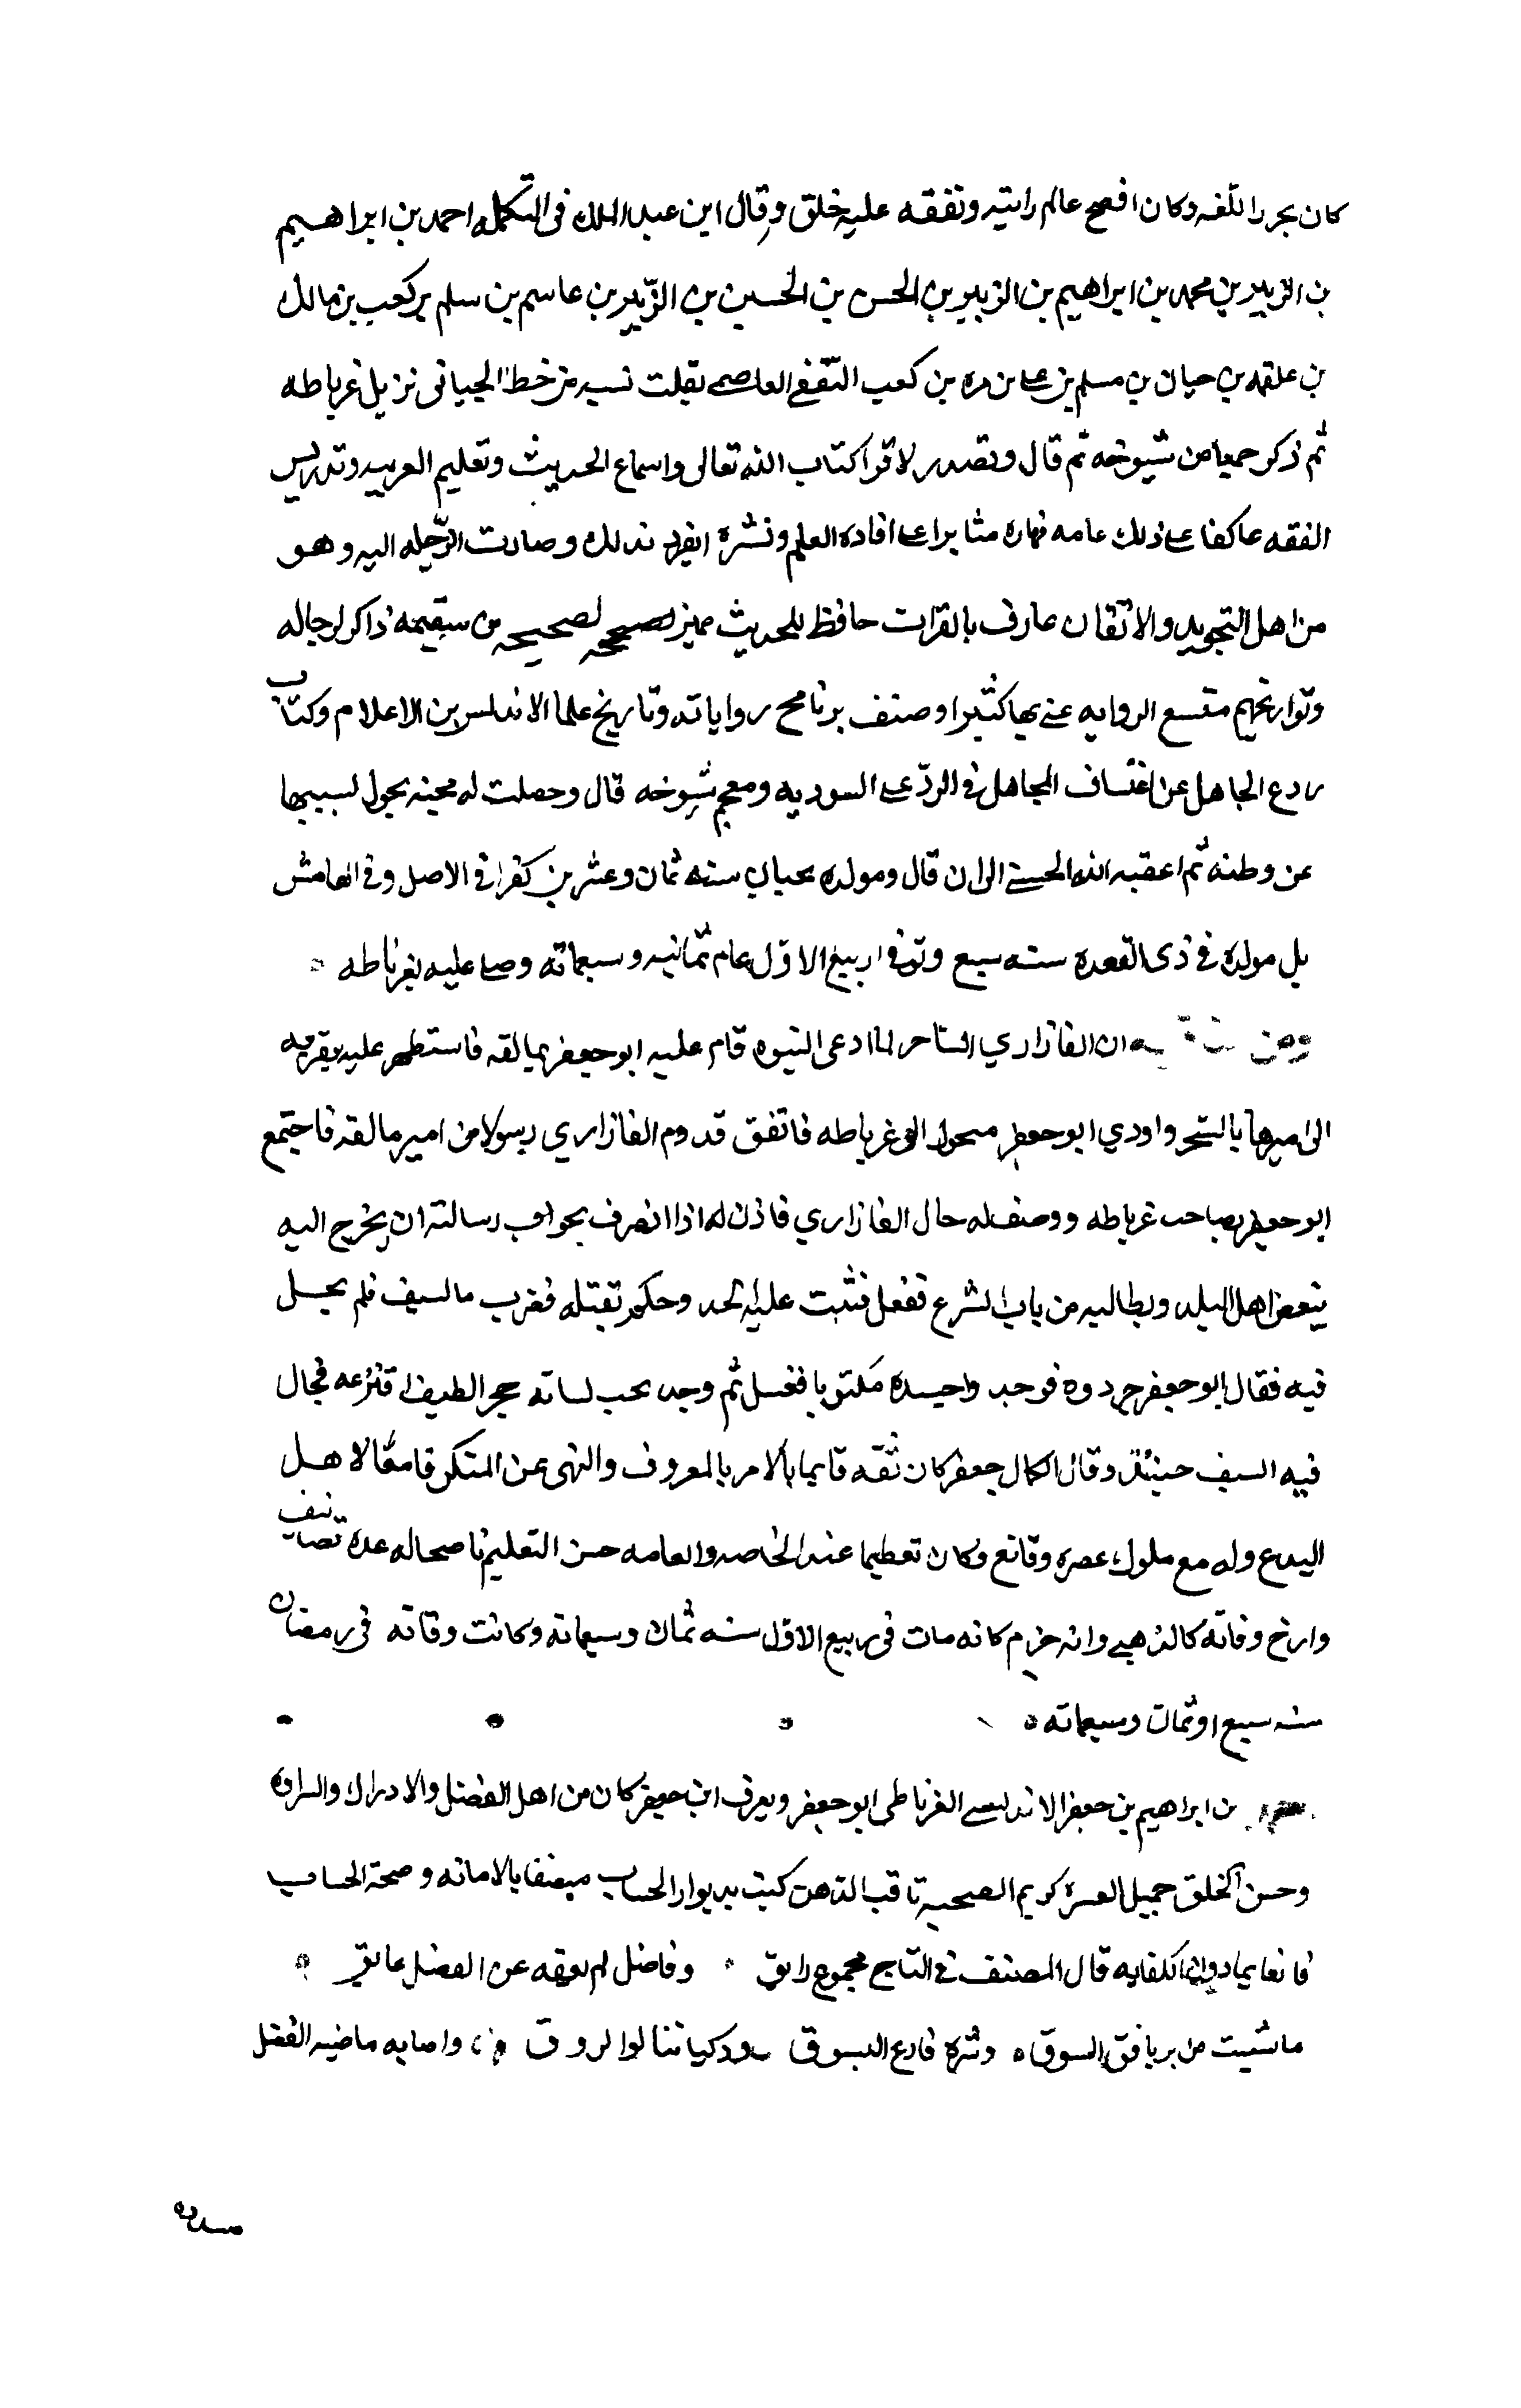 كان يحرر اللغه وكان افصح عالم رايته وتفقه عليه خلق وقال ابن عبد الملك فى التكمله احمد بن ابراهيم
بن الزبير بن محمد بن ابراهيم بن الزبير بن الحسن بن الحسين بن الزّبير بن عاصم بن مسلم بن كعب بن مالك
بن علقمه بن حيان بن مسلم بن على بن مره بن كعب الثقفى العاصمى نقلت نسبه من خط الجيانى نزيل غرناطه
ثم ذكر جمعا من شيوخه ثم قال وتصدر لاقرا كتاب الله تعالى واسماع الحديث وتعليم العربيه وتدريس
الفقه عاكفا على ذلك عامه نهاره مثابرا على افاده العلم ونشره انفرد بذلك وصارت الرّحله اليه وهو
من اهل التجويد والاتقان عارف بالقرات حافظ للحديث مميز لصحيحه من سقيمه ذاكر لرجاله
وتواريخهم متسع الروايه عنى بها كثيرا وصنف برنامج رواياته وتاريخ علما الاندلس من الاعلام وكتاب
ردع الجاهل عن اعتساف المجاهل فى الردّ على السوديه ومعجم شيوخه قال وحصلت له محنه تحول لسببها
عن وطنه ثم اعقبه الله الحسنى الى ان قال ومولده بجيان سنه ثمان وعشرين كذا فى الاصل وفى الهامش
بل مولده فى ذى القعده سنه سبع وتوفى فى ربيع الاوّل عام ثمانيه وسبعمائه وصلى عليه بغرناطه
ومن ان الفازاري الساحر لما ادعى النبوه قام عليه ابو جعفر بمالقه فاستظهر عليه بتقربه
الى اميرها بالسحر واودي ابو جعفر فتحول الى غرناطه فاتفق قدوم الفازاري رسولا من امير مالقه فاجتمع
ابو جعفر بصاحب غرناطه ووصف له حال الفازاري فاذن له اذا انصرف بجواب رسالته ان يخرج اليه
ببعض اهل البلد ويطالبه من باب الشرع ففعل فثبت عليه الحد وحكم بقتله فضرب بالسيف فلم يحل
فيه فقال ابو جعفر جردوه فوجد واجسده مكتوبا فغسل ثم وجد تحت لسانه حجر الطيفا فنزعه فجال
فيه السيف حينئذ وقال الكمال جعفر كان ثقه قايما بالامر بالمعروف والنهى عن المنكر قامعا لاهل
البدع وله مع ملوك عصره وقائع وكان معظيما عند الخاصه والعامه حسن التعليم ناصحا له عده تصانيف
وارخ وفاته كالذهبى وانه جزم كانه مات فى ربيع الاوّل سنه ثمان وسبعمائه وكانت وفاته فى رمضان
سنه سبع او ثمان وسبعمائه
بن ابراهيم بن جعفر الاندلسى الغرناطى ابو جعفر ويعرف ابن جعفر كان من اهل الفضل والادراك والسراوه
وحسن الخلق جميل العشره كريم الصحبه ثاقب الذهن كتب بديوان الحساب متصفا بالامانه وصحة الحساب
قانعا بما دون الكفايه قال المصنف فى التاج مجموع رايق وفاضل لم يعقه عن الفضل عايق
ما شيت من بر نافق السوق ونثره فارع البسوق وذكا وا واصابه ماضيه الفضل